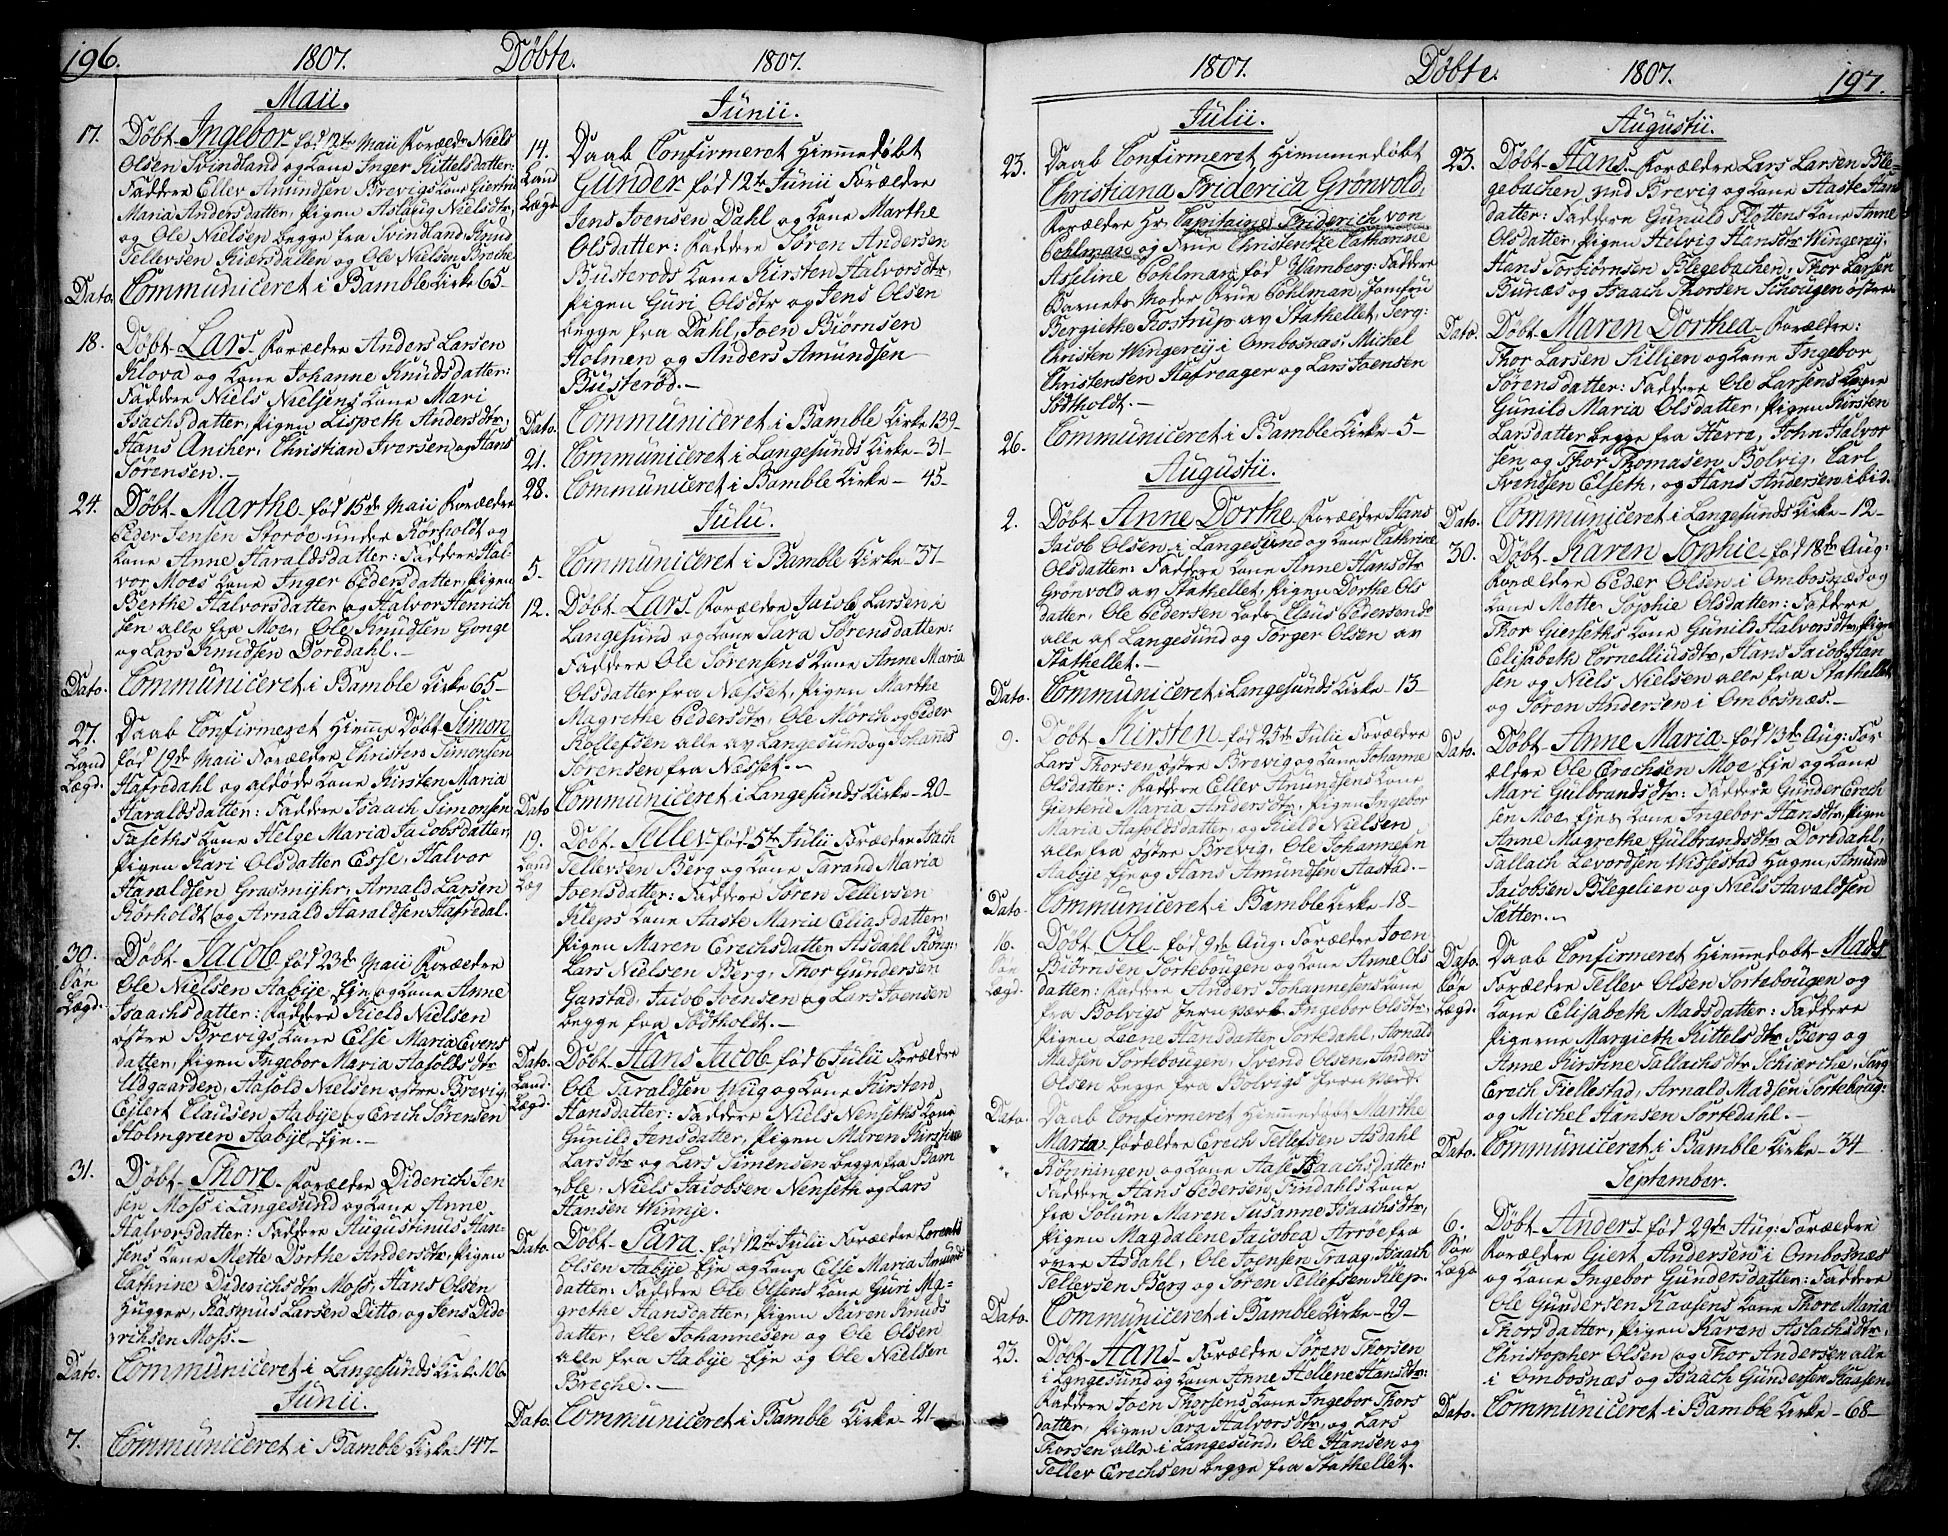 196.
1807. Döbte. 1807.
Maii.
17. Döbt Ingebor født 12te Maii Forældre Niels
Olsen Svindland og Kone Inger Kittelsdatter:
Faddere Ellev Amundsen Brevigs Kone Giertru
Maria Andersdatter, Pigen Aslaug Nielsdtr,
og Ole Nielsen begge fra Svindland, Knud
Tellevsen Kiærsdallen og Ole Nielsen Breche
Dato. Communiceret i Bamble Kirke 65-
18. Döbt Lars. Forældre Anders Larsen
Klova og Kone Johanne Knudsdatter:
Faddere Niels Nielsens Kone Mari
Isachsdatter, Pigen Lisbeth Andersdtr,
Hans Aniher, Christian Iversen og Hans
Sörensen.-
24. Döbt Marthe født 15de Maii Forældre
Peder Jensen Storöe under Rörholdt og
Kone Anne Haraldsdatter: Faddere Hal-
vor Moes Kone Inger Pedersdatter, Pigen
Berthe Halvorsdatter og Halvor Henrich
sen alle fra Moe, Ole Knudsen Gonge
og Lars Knudsen Doredahl.-
Dato. Communiceret i Bamble Kirke 65-
27. Daab Confirmeret Hiemme Döbt Simon
Land fød 19de Maii Forældre Christen Simonsen
Lægd. Hafredahl og afdöde Kone Kirsten Maria
Haraldsdatter: Faddere Isaach Simonsen
Taseths Kone Helge Maria Jacobsdatter,
Pigen Kari Olsdatter Esse, Halvor
Haraldsen Grasmyhr, Arnald Larsen
Rörholdt og Arnald Haraldsen Hafredal.
30. Döbt Jacob fød 23de Maii Forældre
Söe Ole Nielsen Aabye Eje og Kone Anne
Lægd. Isaachsdatter: Faddere Kield Nielsen
østre Brevigs Kone Else Maria Evens
datter, Pigen Ingebor Maria Aasoldsdtr
Udgaarden, Aasold Nielsen østre Brevig,
Ejlert Clausen Aabye og Erich Sörensen
Holmgreen Aabye Eje.-
31. Döbt Thore. Forældre Diderich Jen-
sen Moss i Langesund og Kone Anne
Halvorsdatter: Faddere Augustinus Han-
sens Kone Mette Dorthe Andersdtr, Pigen
Cathrine Diderichsdtr Moss, Hans Olsen
Hugger, Rasmus Larsen Ditto, og Jens Dide-
richsen Moss.-
Dato. Communiceret i Langesunds Kirke 106
Junii.
7. Communiceret i Bamble Kirke 147-
Junii.
14. Daab Confirmeret Hiemmedøbt
Land Gunder fød 12te Junii Forældre
Lægd Jens Joensen Dahl og Kone Marthe
Olsdatter: Faddere Sören Andersen
Busterods Kone Kirsten Halvorsdtr,
Pigen Guri Olsdtr og Jens Olsen
begge fra Dahl, Joen Biörnsen
Holmen og Anders Amundsen
Busteröd.-
Dato. Communiceret i Bamble Kirke 139-
21. Communiceret i Langesunds Kirke 31-
28. Communiceret i Bamble Kirke 45-
Julii.
5. Communiceret i Bamble Kirke 37-
12. Döbt Lars. Forældre Jacob Larsen i
Langesund og Kone Sara Sörensdatter:
Faddere Ole Sörensens Kone Anne Maria
Olsdatter fra Næsset, Pigen Marthe
Magrethe Pedersdtr, Ole Mörch og Peder
Rollefsen alle av Langesund og Johannes
Sörensen fra Næsset.-
Dato Communiceret i Langesunds Kirke 20-
19. Döbt Tellev fød 5te Julii Forældre Isach
Land Tellevsen Berg og Kone Tarand Maria
Læg Joensdatter: Faddere Sören Tellevsen
Kleps Kone Aaste Maria Eliasdatter,
Pigen Maren Erechsdatter Asdahl Röng:
Lars Nielsen Berg, Thor Gundersen
Garstad, Jacob Joensen og Lars Joensen
begge fra Södtholdt.-
Dato. Döbt Hans Jacob fød 6 Julii Forældre
Land. Ole Taraldsen Wiig og Kone Kirsten
Lægd. Hansdatter: Faddere Niels Nenseths Kone
Gunild Jensdatter, Pigen Maren Kirstine
Larsdtr og Lars Simensen begge fra Bam
ble, Niels Jacobsen Nenseth og Lars
Hansen Winreje.
Dato Döbt Sara fød 12te Julii Forældre Lorentz
Olsen Aabye Eje og Kone Else Maria Amunds
datter: Faddere Ole Olsens Kone Guri Ma-
grethe Hansdatter, Pigen Karen Knuds
datter, Ole Johannesen og Ole Olsen
alle fra Aabye Eje og Ole Nielsen
Breche.-
Dato Communiceret i Bamble Kirke 21-
1807. Döbte. 1807. 197.
Julii.
23. Daab Confirmeret Hiemmedøbt
Christiana Friderica Grönvold,
Forældre Hr. Capitaine Friderich von
Pohlman og Frue Christentze Cathrine
Asseline Pohlman, fød Wamberg: Faddere
Barnets Moder Frue Pohlman, Jomfru
Bergiethe Rostrup av Stathellet, Serg:
Christen Wingereij i Ombosnæs: Michel
Christensen Hafreager og Lars Joensen
Södtholdt.-
26. Communiceret i Bamble Kirke 5-
Augustii.
2. Döbt Anne Dorthe, Forældre Hans
Jacob Olsen i Langesund og Kone Cathrine
Olsdatter: Faddere Kone Anne Hansdtr
Grönvold av Stathellet, Pigen Dorthe Ols
datter, Ole Pedersen Lods, Claus Pedersen do
alle af Langesund og Torger Olsen av
Stathellet.-
Dato. Communiceret i Langesunds Kirke 13-
9. Döbt Kirsten fød 25de Julii Forældre
Lars Thorsen østre Brevig og Kone Johanne
Olsdatter: Faddere Ellev Amundsens Kone
Giertrud Maria Andersdtr, Pigen Ingebor
Maria Aasoldsdatter, og Kield Nielsen
alle fra østre Brevig, Ole Johannesen
Aabye Eje og Hans Amundsen Aastad.-
Dato. Communiceret i Bamble Kirke 18-
16. Döbt Ole fød 9de Aug: Forældre Joen
Söe Biörnsen Sortebougen og Kone Anne Ols
Lægd. datter: Faddere Anders Johannesens Kone
fra Bolvigs Jern Værk Ingebor Olsdtr,
Pigen Leene Hansdatter Sortedahl, Arnald
Madsen Sortebougen, Svend Olsen, Anders
Olsen begge fra Bolvigs Jern Værd.
Dato. Daab Confirmeret Hiemmedøbt Marthe
Maria Forældre Erech Tellefsen Asdahl
Rönningen og Kone Aase Isaachsdatter:
Faddere Hans Pedersen Findahls Kone
fra Solum Maren Susanne Isaachsdtr,
Pigen Magdalene Jacobea Arröe fra
øvre Asdahl, Ole Joensen Traag, Isaach
Tellevsen Berg og Sören Tellefsen Klep.
Dato. Communiceret i Bamble Kirke 29-
23. Döbt Hans. Forældre Sören Thorsen
i Langesund og Kone Anne Hellene Hansdtr:
Faddere Joen Thorsens Kone Ingebor Thors
datter, Pigen Sara Halvorsdtr og Lars
Thorsen alle i Langesund, Ole Hansen og
Tellev Erechsen begge fra Stathellet.
Augustii.
23. Döbt Hans. Forældre Lars Larsen Ble-
gebachen und Brevig og Kone Aaste Hans
datter: Faddere Gunuld Flottens Kone Anne
Olsdatter, Pigen Helvig Hansdtr Wingereij,
Hans Torbiörnsen Blegebachen, Thor Larsen
Bunæs og Isaach Thorsen Schougen østre.
Dato. Döbt Maren Dorthea. Forældre:
Thor Larsen Sillien og Kone Ingebor
Sörensdatter: Faddere Ole Larsens Kone
Gunild Maria Olsdatter, Pigen Kirsten
Larsdatter begge fra Herre, John Halvor
sen og Thor Thomasen Bolvig, Carl
Svendsen Elseth, og Hans Andersen ibid.
Dato. Communiceret i Langesunds Kirke 12-
30. Döbt Karen Sophie fød 18de Aug:
Forældre Peder Olsen i Ombosnæs og
Kone Mette Sophie Olsdatter: Faddere
Thor Gierseths Kone Gunild Halvorsdtr, Pigen
Elisabeth Cornelliusdtr, Hans Jacob Han
sen og Niels Nielsen alle fra Stathellet
og Sören Andersen i Ombosnæs.
Dato. Döbt Anne Maria fød 13de Aug: For
ældre Ole Erechsen Moe Eje og Kone
Mari Gulbrandsdtr: Faddere Gunder Erech
sen Moe Ejes Kone Ingebor Hansdtr, Pigen
Anne Magrethe Gulbrandsdtr Doredahl,
Tallach Levordsen Widsestad Hagen, Amun
Jacobsen Blegelien og Niels Havaldsen
Sætter.-
Dato. Daab Confirmeret Hiemmedøbt Mads
Söe Forældre Tellev Olsen Sortebougen og
Lægd. Kone Elisabeth Madsdatter: Faddere
Pigerne Margieth Kittelsdtr Berg og
Anne Kirstine Tallachsdtr Schiærche, Sørg
Erech Fiellestad, Arnald Madsen Sortebaug:
og Michel Hansen Sortedahl.-
Dato. Communiceret i Bamble Kirke 34-
September.
6. Döbt Anders fød 29de Aug: Forældre
Söe Forældre Giert Andersen i Ombosnæs
Lægd og Kone Ingebor Gundersdatter: Faddere
Ole Gundersen Kaasens Kone Thore Maria
Thorsdatter, Pigen Karen Aslachsdtr,
Christopher Olsen og Thor Andersen alle
i Ombosnæs og Isaach Gundersen Kaasen.
Dato. Communiceret i Bamble Kirke 68-